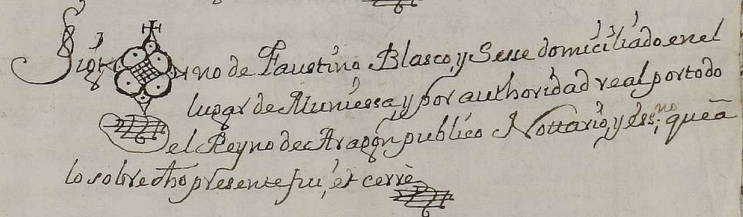 Sig no de Faustino Blasco, y Sese domiciliado en el
lugar de Muniessa y por authoridad real por todo
el Reyno de Aragon publico Nottario, y ess.no que â
lo sobredho presente fui, et cerrè